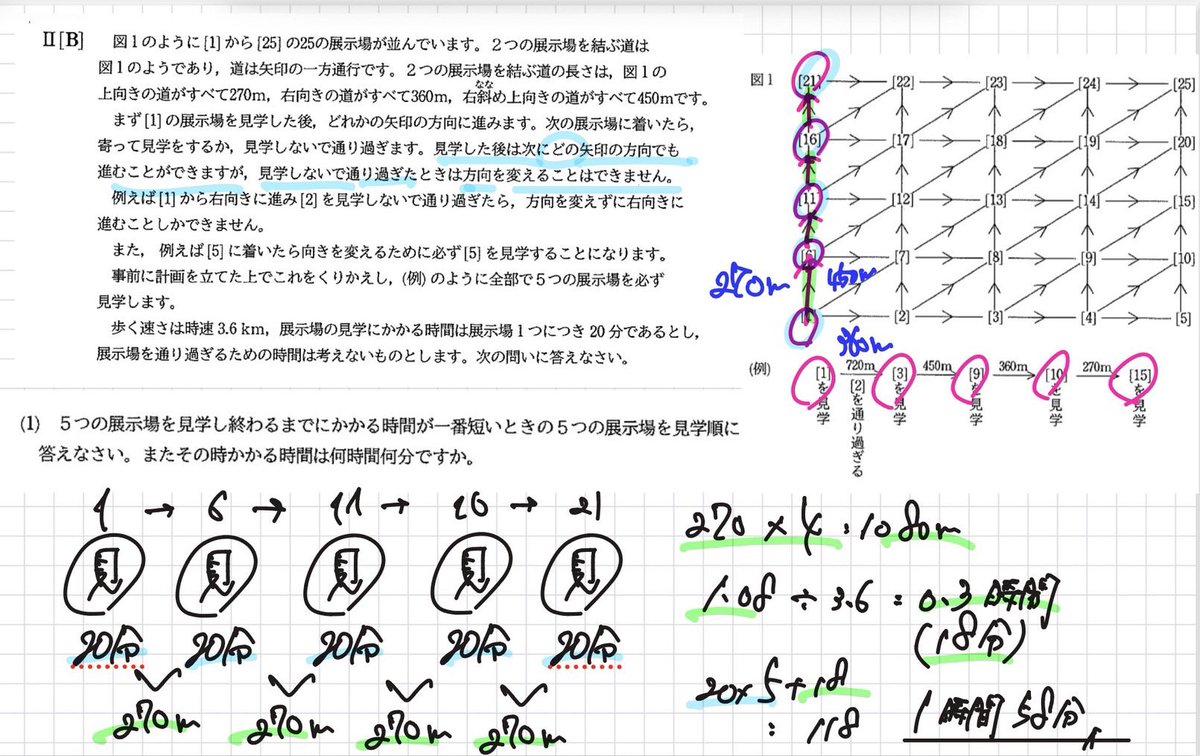 Ⅱ[B] 図1のように[1]から[25]の25の展示場が並んでいます。2つの展示場を結ぶ道は
図1のようであり，道は矢印の一方通行です。2つの展示場を結ぶ道の長さは，図1の
上向きの道がすべて270m，右向きの道がすべて360m，右斜め上向きの道がすべて450mです。
なな
まず[1]の展示場を見学した後，どれかの矢印の方向に進みます。次の展示場に着いたら，
寄って見学をするか，見学しないで通り過ぎます。見学した後は次にどの矢印の方向でも
進むことができますが，見学しないで通り過ぎたときは方向を変えることはできません。
例えば[1]から右向きに進み[2]を見学しないで通り過ぎたら，方向を変えずに右向きに
進むことしかできません。
また，例えば[5]に着いたら向きを変えるために必ず[5]を見学することになります。
事前に計画を立てた上でこれをくりかえし，(例)のように全部で5つの展示場を必ず
見学します。
歩く速さは時速3.6km，展示場の見学にかかる時間は展示場1つにつき20分であるとし，
展示場を通り過ぎるための時間は考えないものとします。次の問いに答えなさい。
図1
[21] [22] [23] [24] [25]
[16] [17] [18] [19] [20]
[11] [12] [13] [14] [15]
[6] [7] [8] [9] [10]
[2] [3] [4] [5]
270m 450m
360m
(例) [1]を見学 720m [2]を通り過ぎる [3]を見学 450m [9]を見学 360m [10]を見学 270m [15]を見学
(1) 5つの展示場を見学し終わるまでにかかる時間が一番短いときの5つの展示場を見学順に
答えなさい。またその時かかる時間は何時間何分ですか。
1 → 6 → 11 → 16 → 21
見 見 見 見 見
20分 20分 20分 20分 20分
270m 270m 270m 270m
270×4:1080m
1.08÷3.6=0.3時間
(18分)
20×5+18
:118
1時間58分